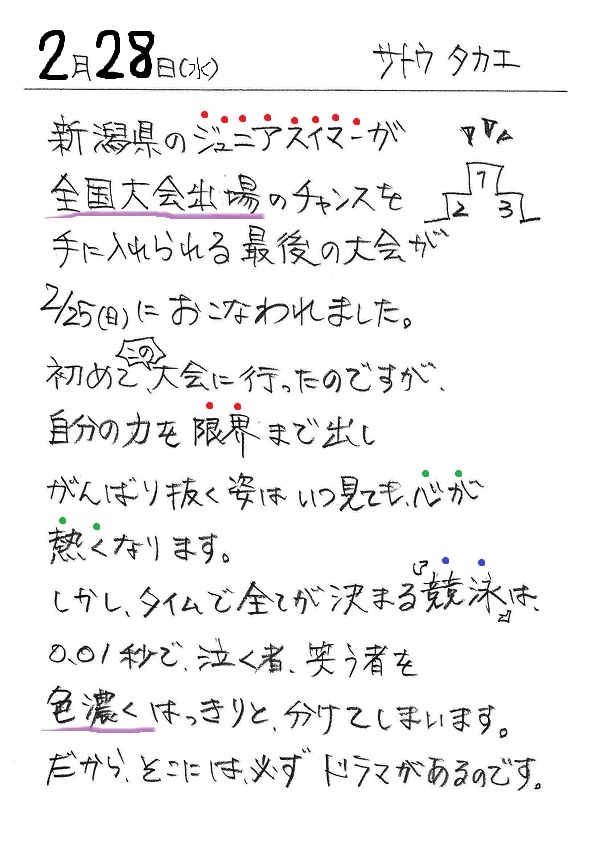 2月28日(水) サトウ タカエ
新潟県のジュニアスイマーが
全国大会出場のチャンスを
1
2 3
手に入れられる最後の大会が
2/25(日)におこなわれました。
この
初めて、大会に行ったのですが、
自分の力を限界まで出し
がんばり抜く姿はいつ見ても、心が
熱くなります。
しかし、タイムで全てが決まる「競泳」は、
0.01秒で、泣く者、笑う者を
色濃くはっきりと、分けてしまいます。
だから、そこには、必ずドラマがあるのです。